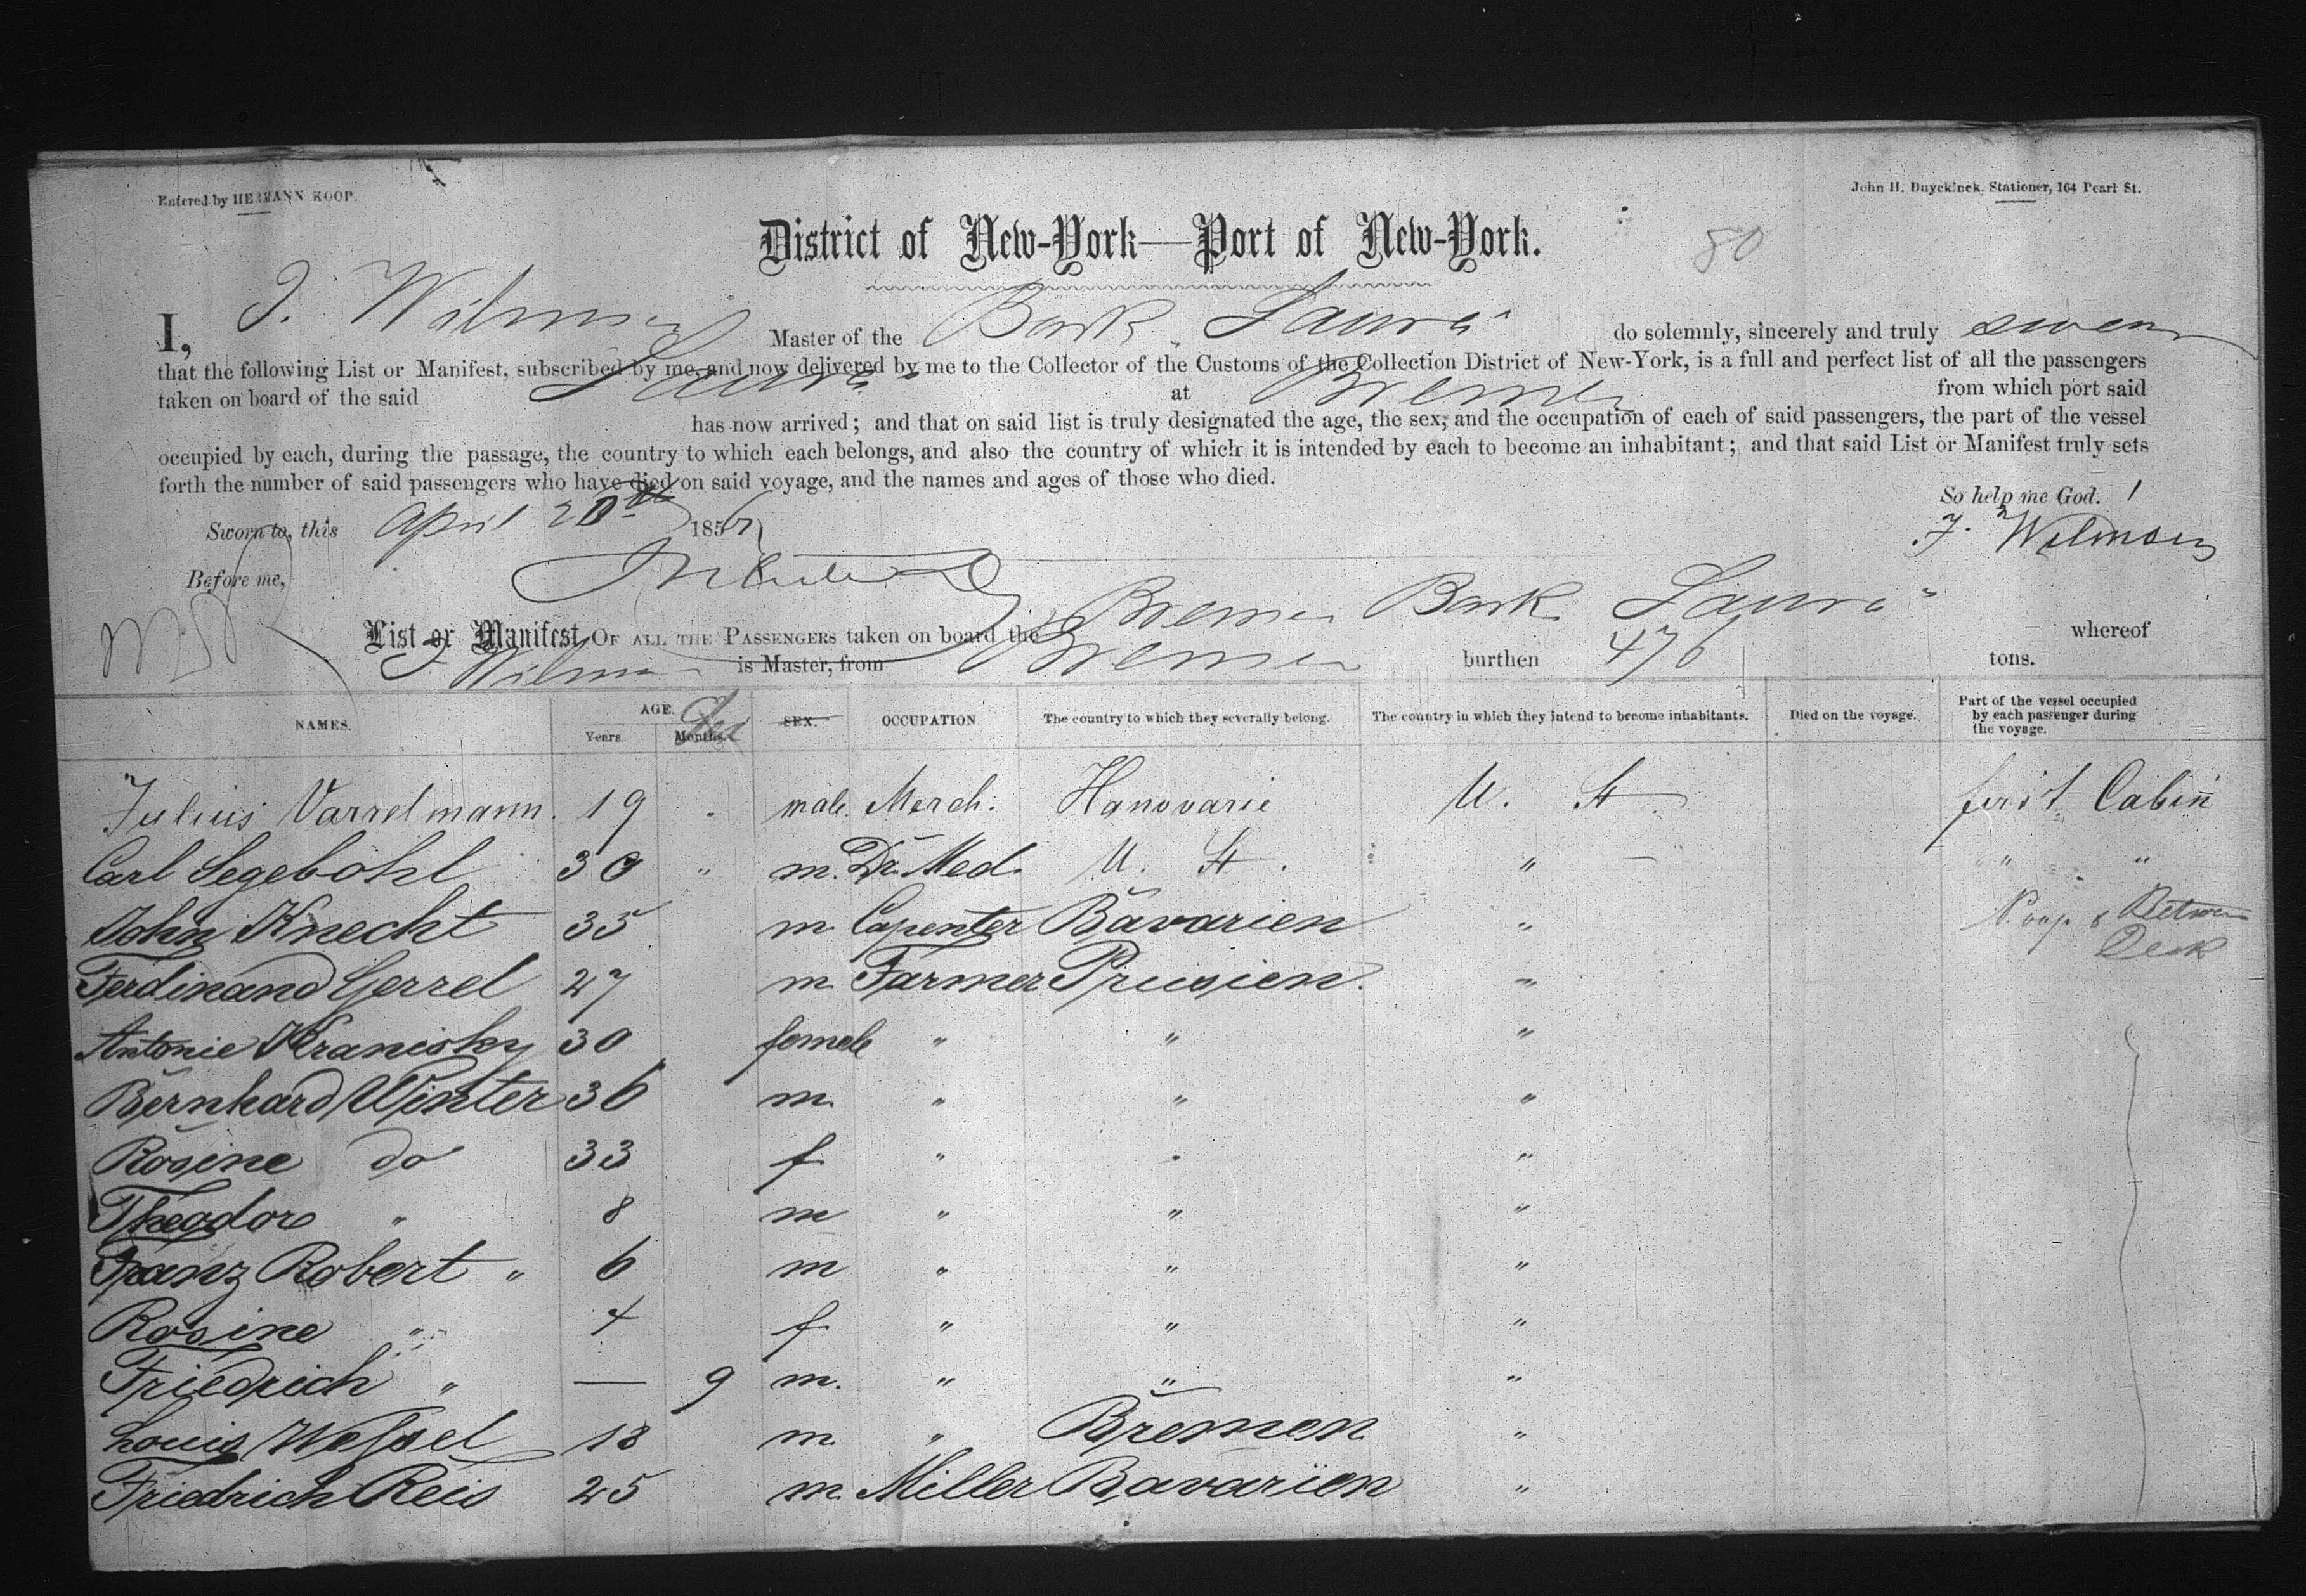 Entered by HERMANN KOOP.
John H. Duyckinck, Stationer, 164 Pearl St.
District of New-York—Port of New-York.
80
I, Master of the Bark "Laura" do solemnly, sincerely and truly swear
that the following List or Manifest, subscribed by me, and now delivered by me to the Collector of the Customs of the Collection District of New-York, is a full and perfect list of all the passengers
taken on board of the said Laura" at Bremen from which port said
has now arrived; and that on said list is truly designated the age, the sex, and the occupation of each of said passengers, the part of the vessel
occupied by each, during the passage, the country to which each belongs, and also the country of which it is intended by each to become an inhabitant; and that said List or Manifest truly sets
forth the number of said passengers who have died on said voyage, and the names and ages of those who died.
So help me God.
Sworn to, this April 20th 185
Before me,
List or Manifest OF ALL THE PASSENGERS taken on board the Bremen Bark Laura" whereof
is Master, from Bremen burthen 476 tons.
NAMES. AGE. Years. Months. SEX. OCCUPATION The country to which they severally belong. The country in which they intend to become inhabitants. Died on the voyage. Part of the vessel occupied by each passenger during the voyage.
Julius Varrelmann. 19 " male. Merch. Hanovarie U. St first Cabin
Carl Segebohl 30 " m. Dr. Med. U. St. " " "
John Knecht 35 m Capenter Bavarien " Poop & Betwen
Deck
Ferdinand Gerrel 27 m Farmer Prusien. "
Antonie Kranisky 30 female " " "
Bernhard Winter 36 m. " " "
Rosine do 33 f " " "
Theodor " 8 m " " "
Franz Robert " 6 m " " "
Rosine " 4 f " " "
Friedrich " — 9 m. " " "
Louis Wessel 18 m " Bremen "
Friedrich Reis 25 m. Miller Bavarien "